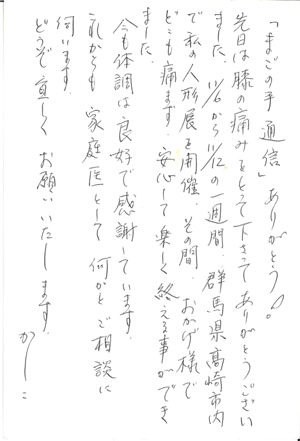 「まごの手通信」ありがとう!。
先日は膝の痛みをとって下さってありがとうござい
ました。11/6から11/12の一週間、群馬県高崎市内
で私の人形展を開催、その間、おかげ様で
どこも痛まず、安心して楽しく終える事ができ
ました。
今も体調は良好で感謝しています。
これからも家庭医として何かとご相談に
伺います。
どうぞ宜しくお願いいたします。
かしこ